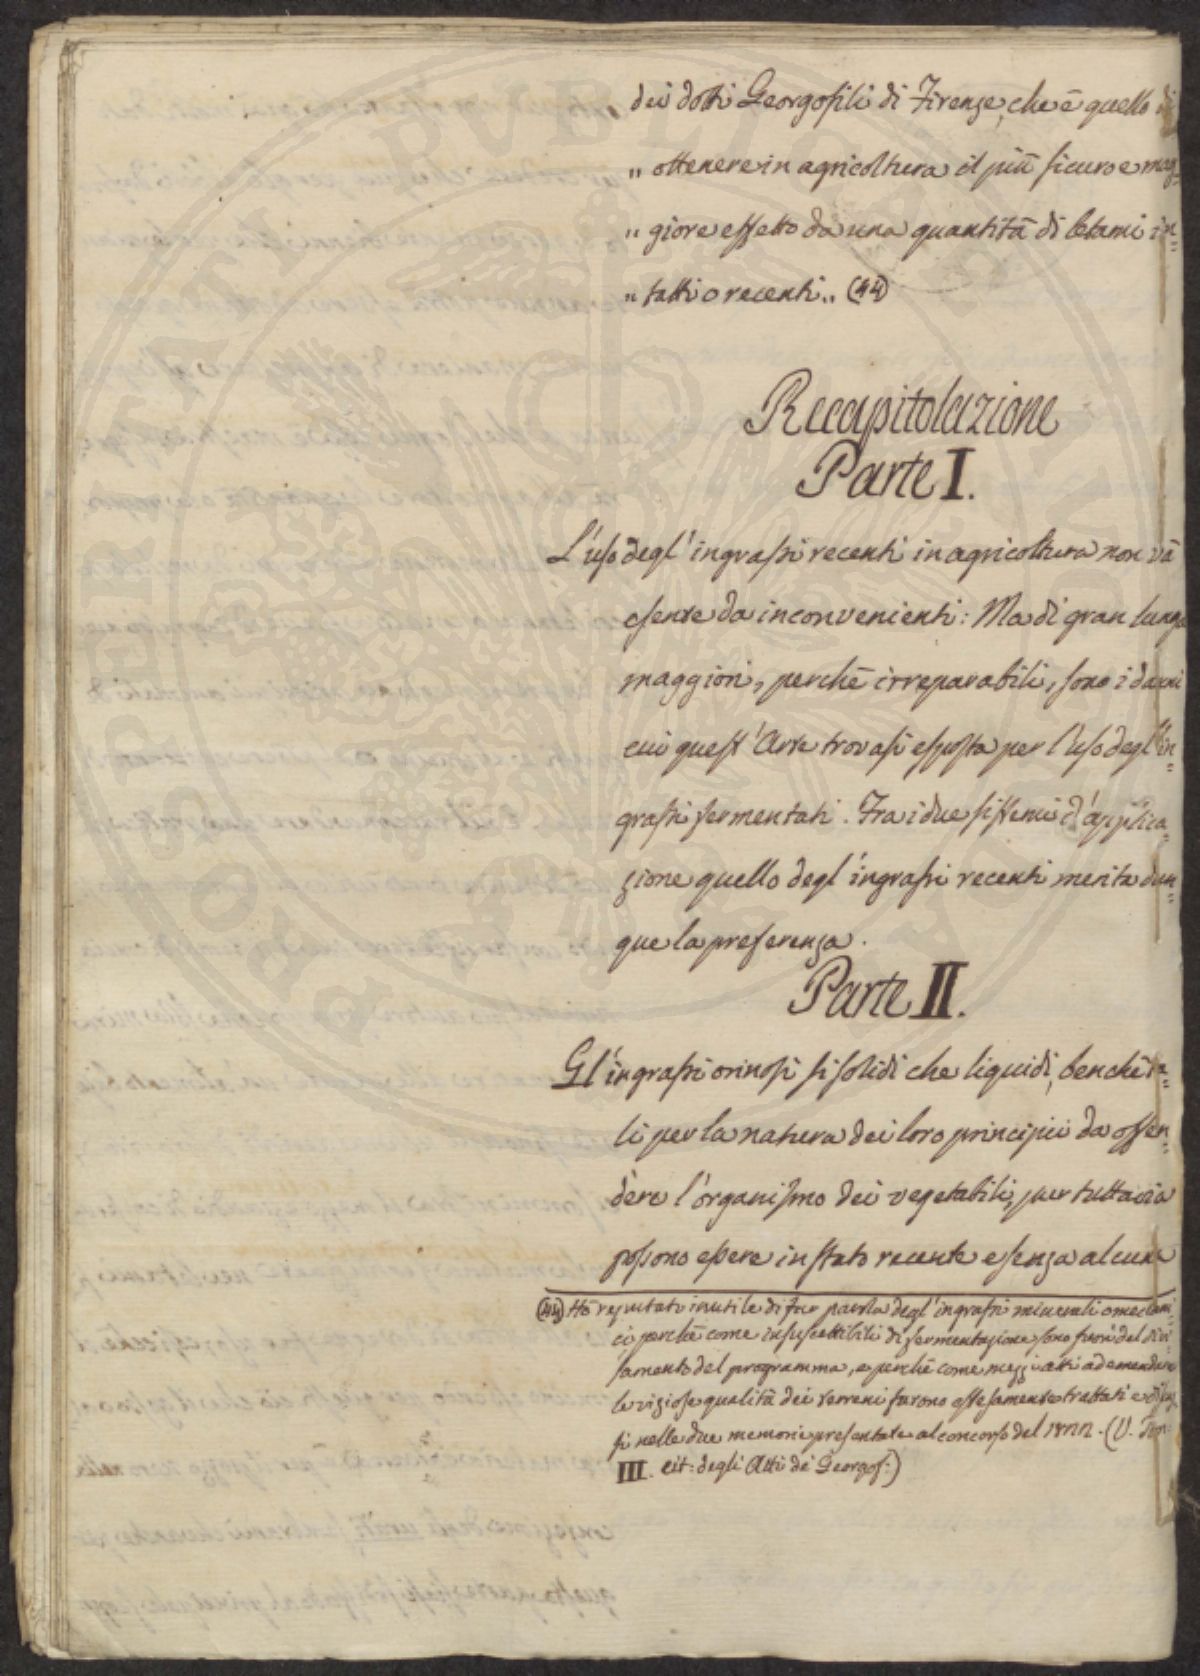 dei dotti Georgofili di Firenze, che è quello di
„ ottenere in agricoltura il più sicuro e mag=
„ giore effetto da una quantità di letami in=
„ tatti o recenti „ (44)
Recapitolazione
Parte I.
L'uso degl'ingrassi recenti in agricoltura non và
esente da inconvenienti: Ma di gran lunga
maggiori, perchè irreparabili, sono i danni
cui quest'Arte trovasi esposta per l'uso degl'in=
grassi fermentati. Fra i due sistemi d'applica=
zione quello degl'ingrassi recenti merita dun=
que la preferenza.
Parte II.
Gl'ingrassi orinosi sì solidi che liquidi, benchè ta=
li per la natura dei loro principii da offen=
dere l'organismo dei vegetabili, pur tuttavia
possono essere in stato recente e senza alcuna
(44) Hò reputato inutile di far parola degl'ingrassi minerali o meccani=
ci perchè come insuscettibili di fermentazione sono fuori del divi=
samento del programma, e perchè come mezzi atti ad emendare
le viziose qualità dei terreni furono estesamente trattati e
si nelle due memorie presentate al concorso del (V. Tom:
III. cit: degli Atti de Georgof:)
PROSPERITATI PUBLICAE AUGENDAE